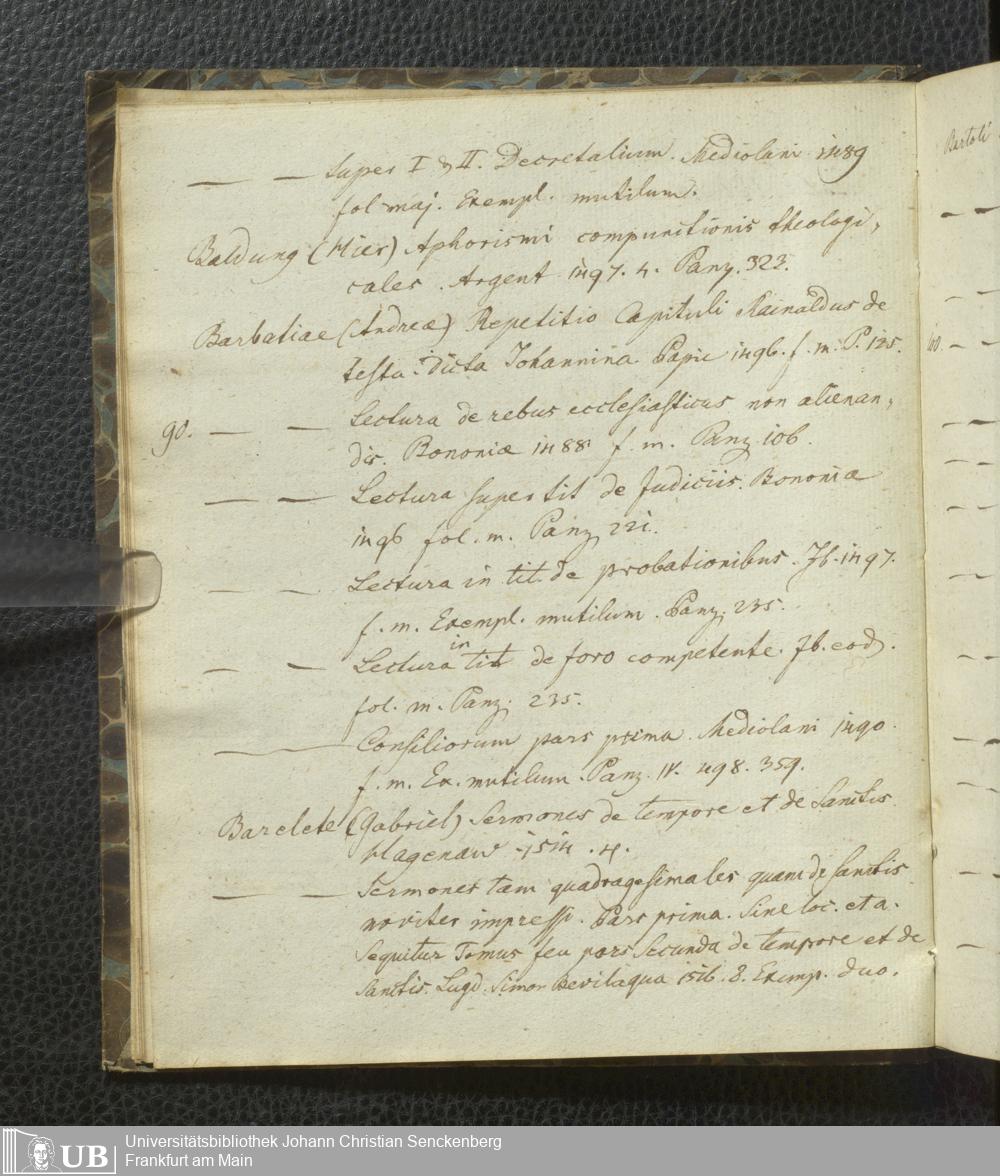 — — super I & II. Decretalium. Mediolani 1489
fol maj. Exempl. mutilum.
Baldung (Hier) Aphorismi compunctionis theologi,
cales. Argent 1497. 4. Panz. 323.
Barbatiae (Andreæ) Repetitio Capituli Rainaldus de
testa. Dicta Johannina. Papie 1496. f. m. P. 125.
90. — — Lectura de rebus ecclesiasticus non alienan,
dis. Bononiæ 1488 f. m. Panz 106.
— — Lectura super tit de Judiciis. Bononiæ
1496 fol. m. Panz 221.
— — Lectura in tit. de probationibus. Ib. 1497.
f. m. Exempl. mutilum. Panz. 235.
— — Lectura in tit de foro competente. Ib. eod.
fol. m. Panz. 235.
— — Consiliorum pars prima. Mediolani 1490.
f. m. Ex. mutilum. Panz. IV. 498. 359.
Barelete (Gabriel) Sermones de tempore et de Sanctis
Hagenaw 1514. 4.
— — Sermones tam quadragesimales quam de sanctis
noviter impressi. Pars prima. Sine loc. et a.
Sequitur Tomus seu pars Secunda de tempore et de
Sanctis. Lugd. Simon Bevilaqua 1516. 8. Exemp. duo.
Bartoli
UB
Universitätsbibliothek Johann Christian Senckenberg
Frankfurt am Main